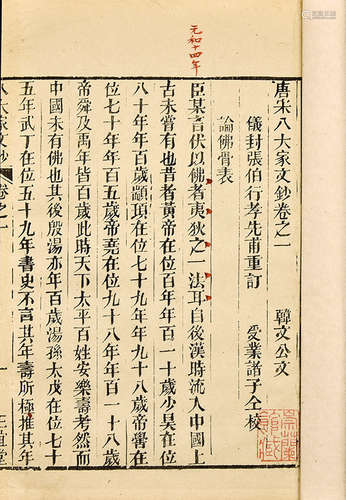 元和十四年
唐宋八大家文鈔卷之一　韓文公文
儀封張伯行孝先甫重訂　受業諸子仝校
論佛骨表
臣某言伏以佛者夷狄之一法耳自後漢時流入中國上
古未嘗有也昔者黃帝在位百年年百一十歲少昊在位
八十年年百歲顓頊在位七十九年年九十八歲帝嚳在
位七十年年百五歲帝堯在位九十八年年百一十八歲
帝舜及禹年皆百歲此時天下太平百姓安樂壽考然而
中國未有佛也其後殷湯亦年百歲湯孫太戊在位七十
五年武丁在位五十九年書史不言其年壽所極推其年
八大家文鈔 卷之一 一 正誼堂